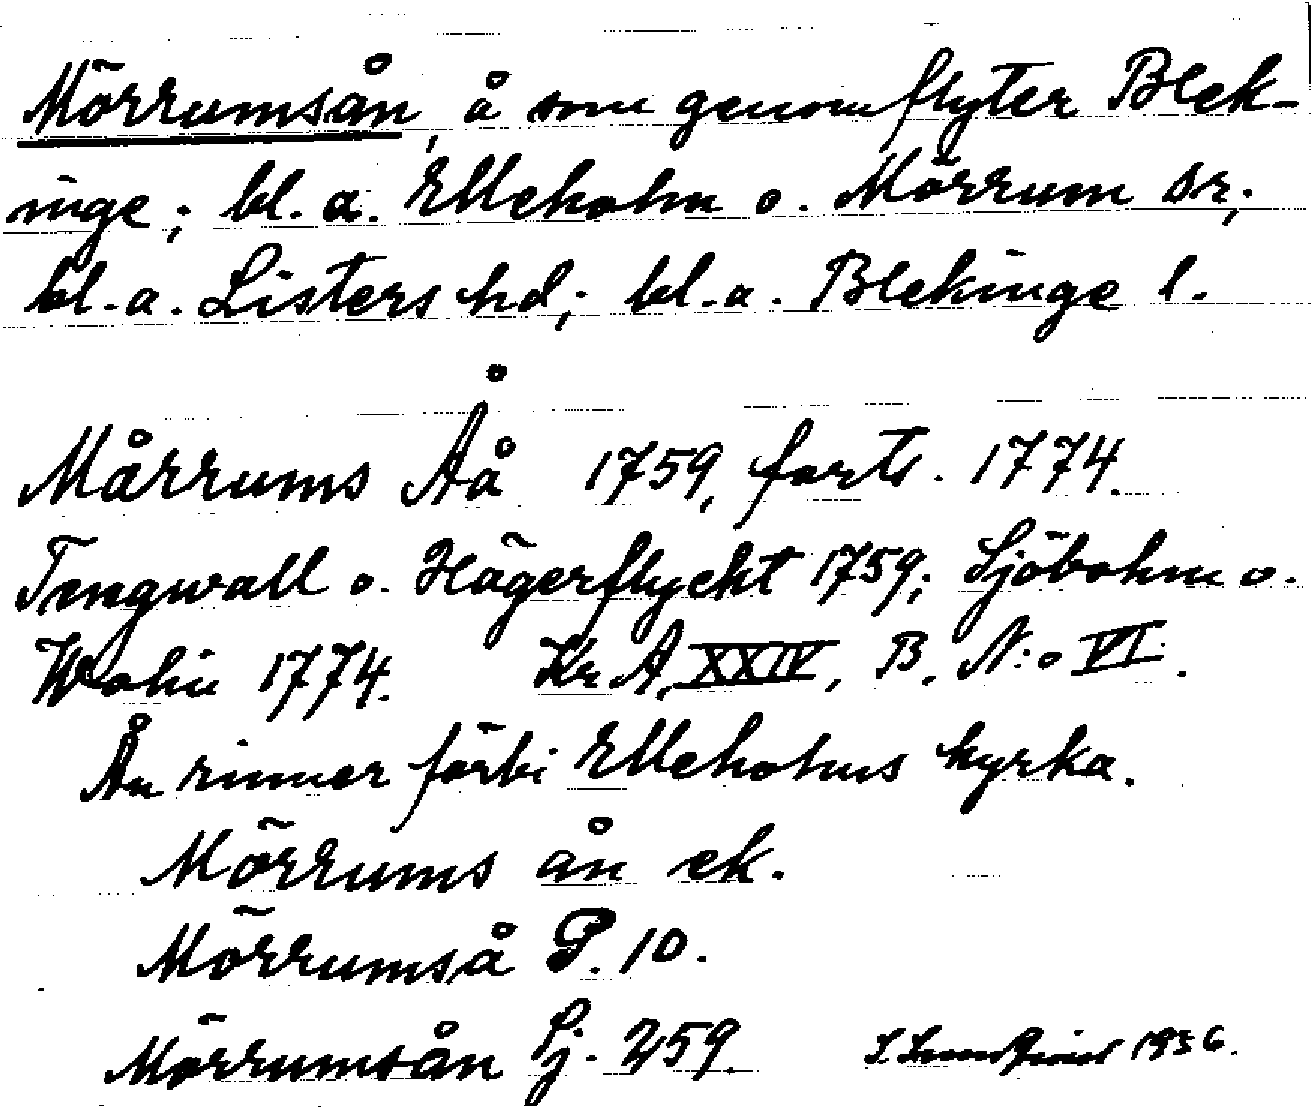 Mörrumsån, å som genomflyter Blek-
inge; bl. a. Elleholm o. Mörrum sr;
bl. a. Listers hd; bl. a. Blekinge l.
Mårrums Åå 1759, forts. 1774.
Tengwall o. Hägerflycht 1759; Sjöbohm o.
Wohn 1774. Kr A, XXIV, B. N:o VI.
Ån rinner förbi Elleholms kyrka.
Mörrums ån ek.
Mörrumså P. 10.
Mörrumsån Sj. 259. 1936.